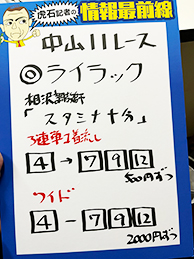 虎石記者の
情報最前線
中山11レース
◎ライラック
相沢調教師
「スタミナ十分」
3連単1着流し
4→7 9 12
500円ずつ
ワイド
4-7 9 12
2000円ずつ